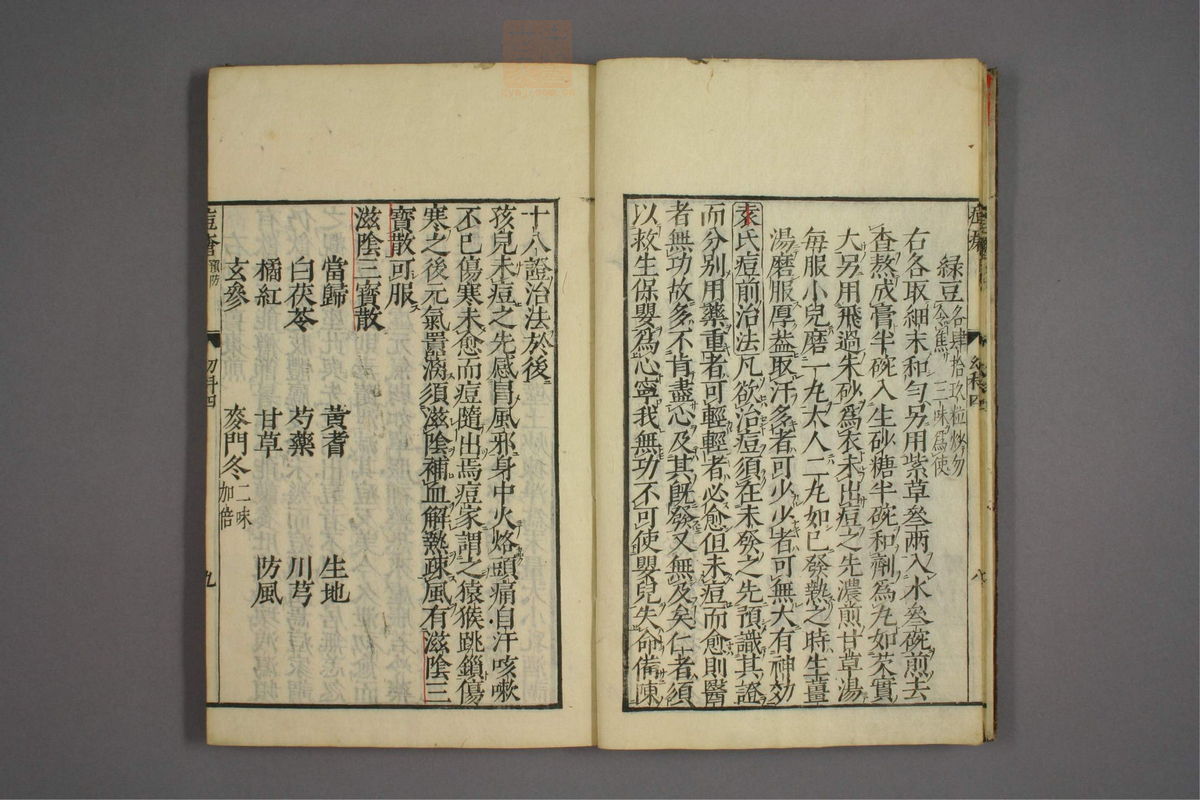 緑豆各肆拾玖粒炒勿
令焦三味為使
右各取細末和勻另用紫草叁兩入水叁碗煎去
查熬成膏半碗入生砂糖半碗和劑為丸如芡實
大另用飛過朱砂為衣未出痘之先濃煎甘草湯
每服小兒磨一丸大人二丸如已發熱之時生薑
湯磨服厚蓋取汗多者可少少者可無大有神効
袁氏痘前治法凡欲治痘須在未發之先預識其證
而分別用藥重者可輕輕者必愈但未痘而愈則醫
者無功故多不肯盡心及其既發又無及矣仁者須
以救生保嬰為心寧我無功不可使嬰兒失命備陳
八
十八證治法於後
孩兒未痘之先感冒風邪身中火烙頭痛自汗咳嗽
不已傷寒未愈而痘隨出焉痘家謂之猿猴跳鎖傷
寒之後元氣羸滴須滋陰補血解熱疎風有滋陰三
寶散可服
滋陰三寶散
當歸 黃耆 生地
白茯苓 芍藥 川芎
橘紅 甘草 防風
玄參 麥門冬二味
加倍
預防
九